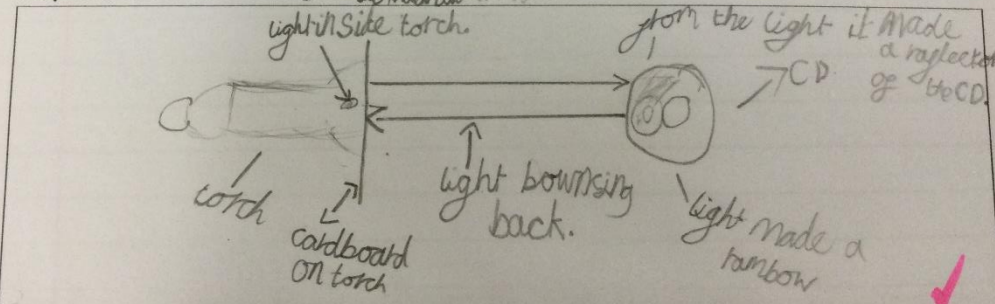 light inside torch.
from the light it made
a reflection
of the CD.
CD
torch
cardboard
on torch
light bownsing
back.
light made a
rambow